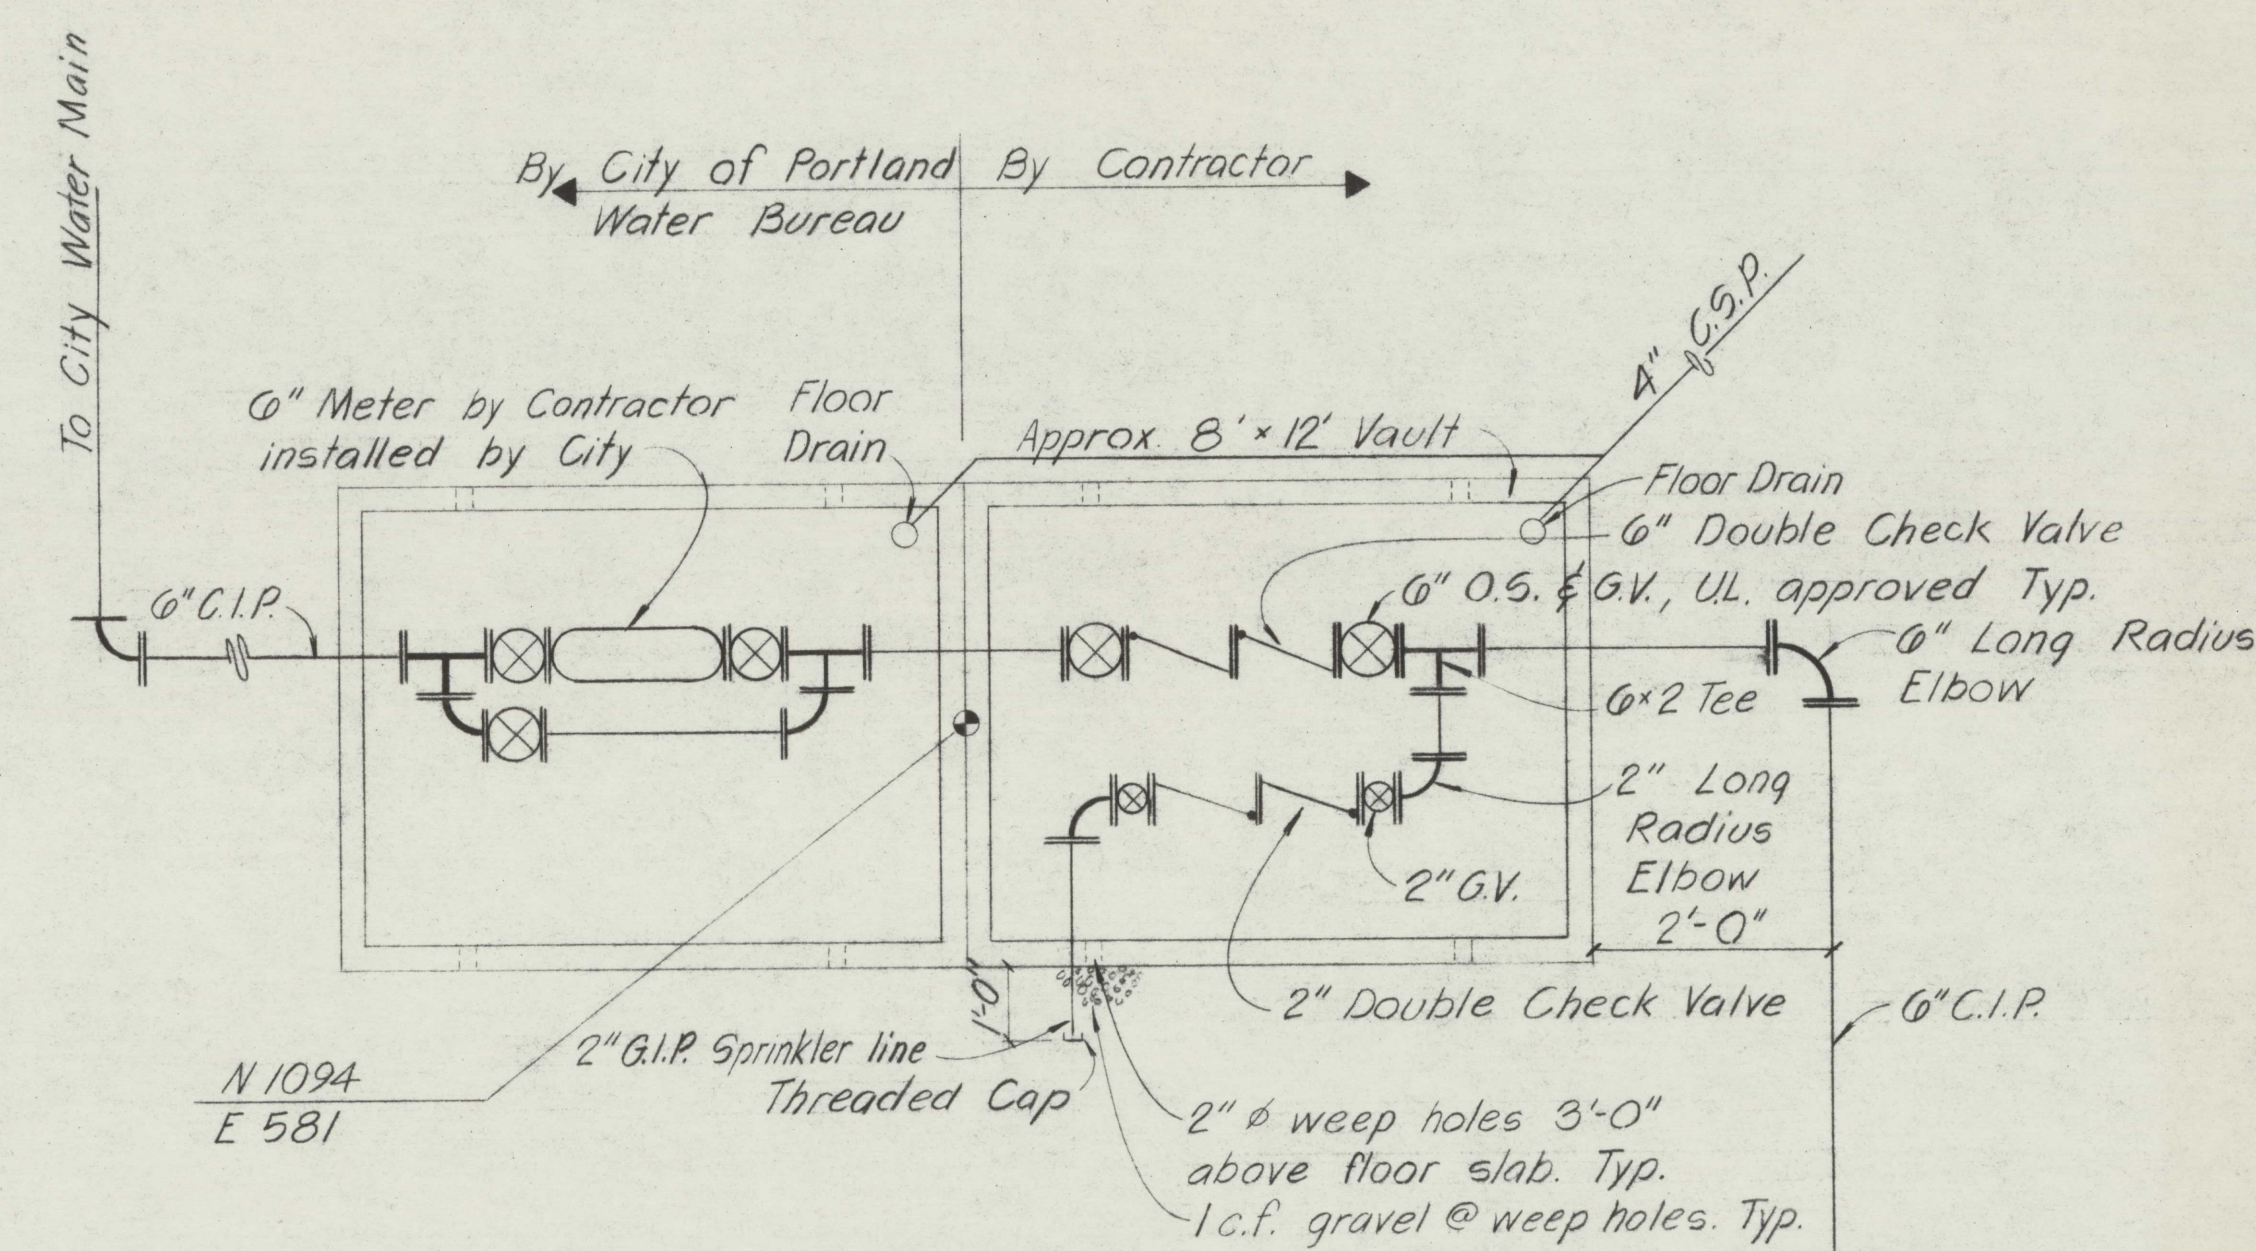 To City Water Main
By City of Portland
Water Bureau
By Contractor
6" Meter by Contractor
installed by City
Floor
Drain
Approx. 8' × 12' Vault
4" C.S.P.
Floor Drain
6" Double Check Valve
6" O.S. & G.V., U.L. approved Typ.
6" C.I.P.
6" Long Radius
Elbow
6×2 Tee
2" Long
Radius
Elbow
2'-0"
2" G.V.
2" Double Check Valve
6" C.I.P.
1'-0"
2" G.I.P. Sprinkler line
Threaded Cap
N 1094
E 581
2" ø weep holes 3'-0"
above floor slab. Typ.
1 c.f. gravel @ weep holes. Typ.